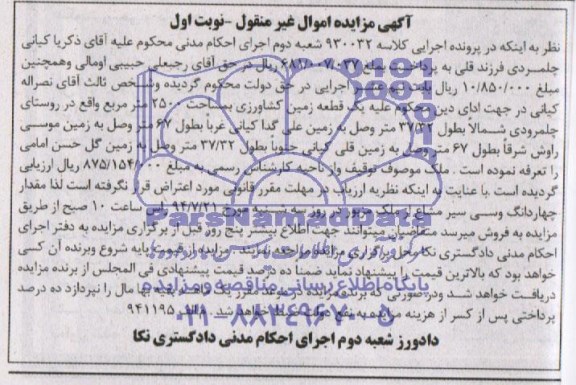 آگهی مزایده اموال غیر منقول -نوبت اول
نظر به اینکه در پرونده اجرایی کلاسه ۹۳۰۰۳۲ شعبه دوم اجرای احکام مدنی محکوم علیه آقای ذکریا کیانی
چلمردی فرزند قلی به پرداخت مبلغ ۶۸۲/۰۰۷/۰۳۷ ریال در حق آقای رجبعلی حبیبی اومالی وهمچنین
مبلغ ۱۰/۸۵۰/۰۰۰ ریال بابت نیم عشر اجرایی در حق دولت محکوم گردیده وشخص ثالث آقای نصراله
کیانی در جهت ادای دین محکوم علیه یک قطعه زمین کشاورزی بمساحت ۲۵۰۰ متر مربع واقع در روستای
چلمرودی شمالاً بطول ۳۷/۳۲ متر وصل به زمین علی گدا کیانی غرباً بطول ۶۷ متر وصل به زمین موسی
راوش شرقاً بطول ۶۷ متر وصل به زمین قلی کیانی جنوباً بطول ۳۷/۳۲ متر وصل به زمین گل حسن امامی
را تعرفه نموده است . ملک موصوف توقیف واز ناحیه کارشناس رسمی به مبلغ ۸۷۵/۱۵۴/۰۰۰ ریال ارزیابی
گردیده است .با عنایت به اینکه نظریه ارزیاب در مهلت مقرر قانونی مورد اعتراض قرار نگرفته است لذا مقدار
چهاردانگ وسی سیر مشاع از ملک مزبور در روز سه شنبه مورخ ۹۴/۷/۲۱ راس ساعت ۱۰ صبح از طریق
مزایده به فروش میرسد متقاضیان میتوانند جهت اطلاع بیشتر پنج روز قبل از برگزاری مزایده به دفتر اجرای
احکام مدنی دادگستری نکا محل برگزاری مزایده مراجعه نمایند . مزایده از قیمت پایه شروع وبرنده آن کسی
خواهد بود که بالاترین قیمت را پیشنهاد نماید ضمنا ده درصد قیمت پیشنهادی فی المجلس از برنده مزایده
دریافت خواهد شد ودر صورتی که برنده مزایده در موعد مقرر یک ماهه بقیه بها مال را نپردازد ده درصد
پرداختی پس از کسر از هزینه مزایده به نفع دولت ضبط خواهد شد . م/الف ۹۴۱۱۹۵
دادورز شعبه دوم اجرای احکام مدنی دادگستری نکا
ParsNamadData
پایگاه اطلاع رسانی مناقصه و مزایده
۰۲۱-۸۸۳۴۹۶۷۰-۵